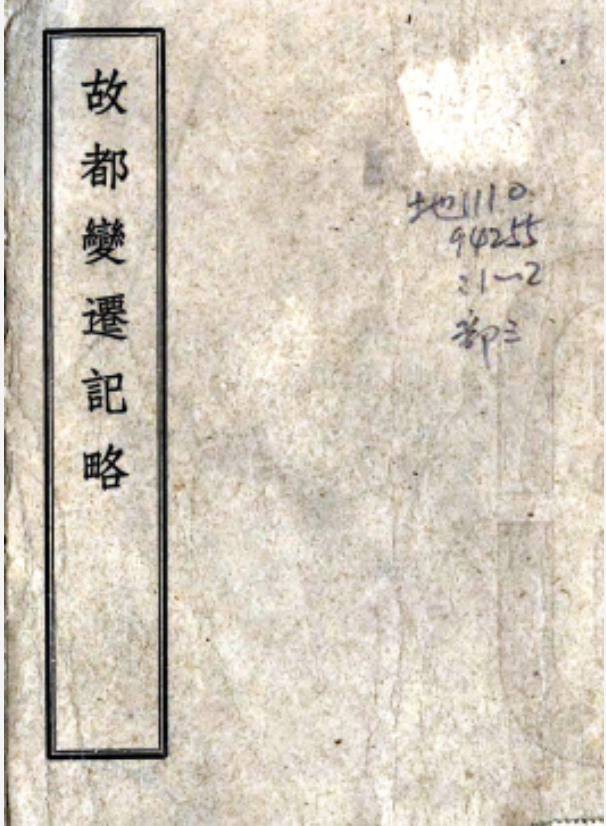 故都變遷記略
地1110
94255
:1~2
部三